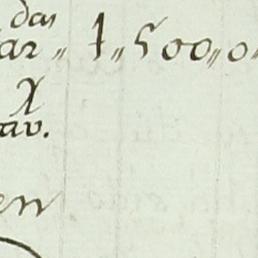 das
ar „ 1 „ 500 „ 0
X
av.
en